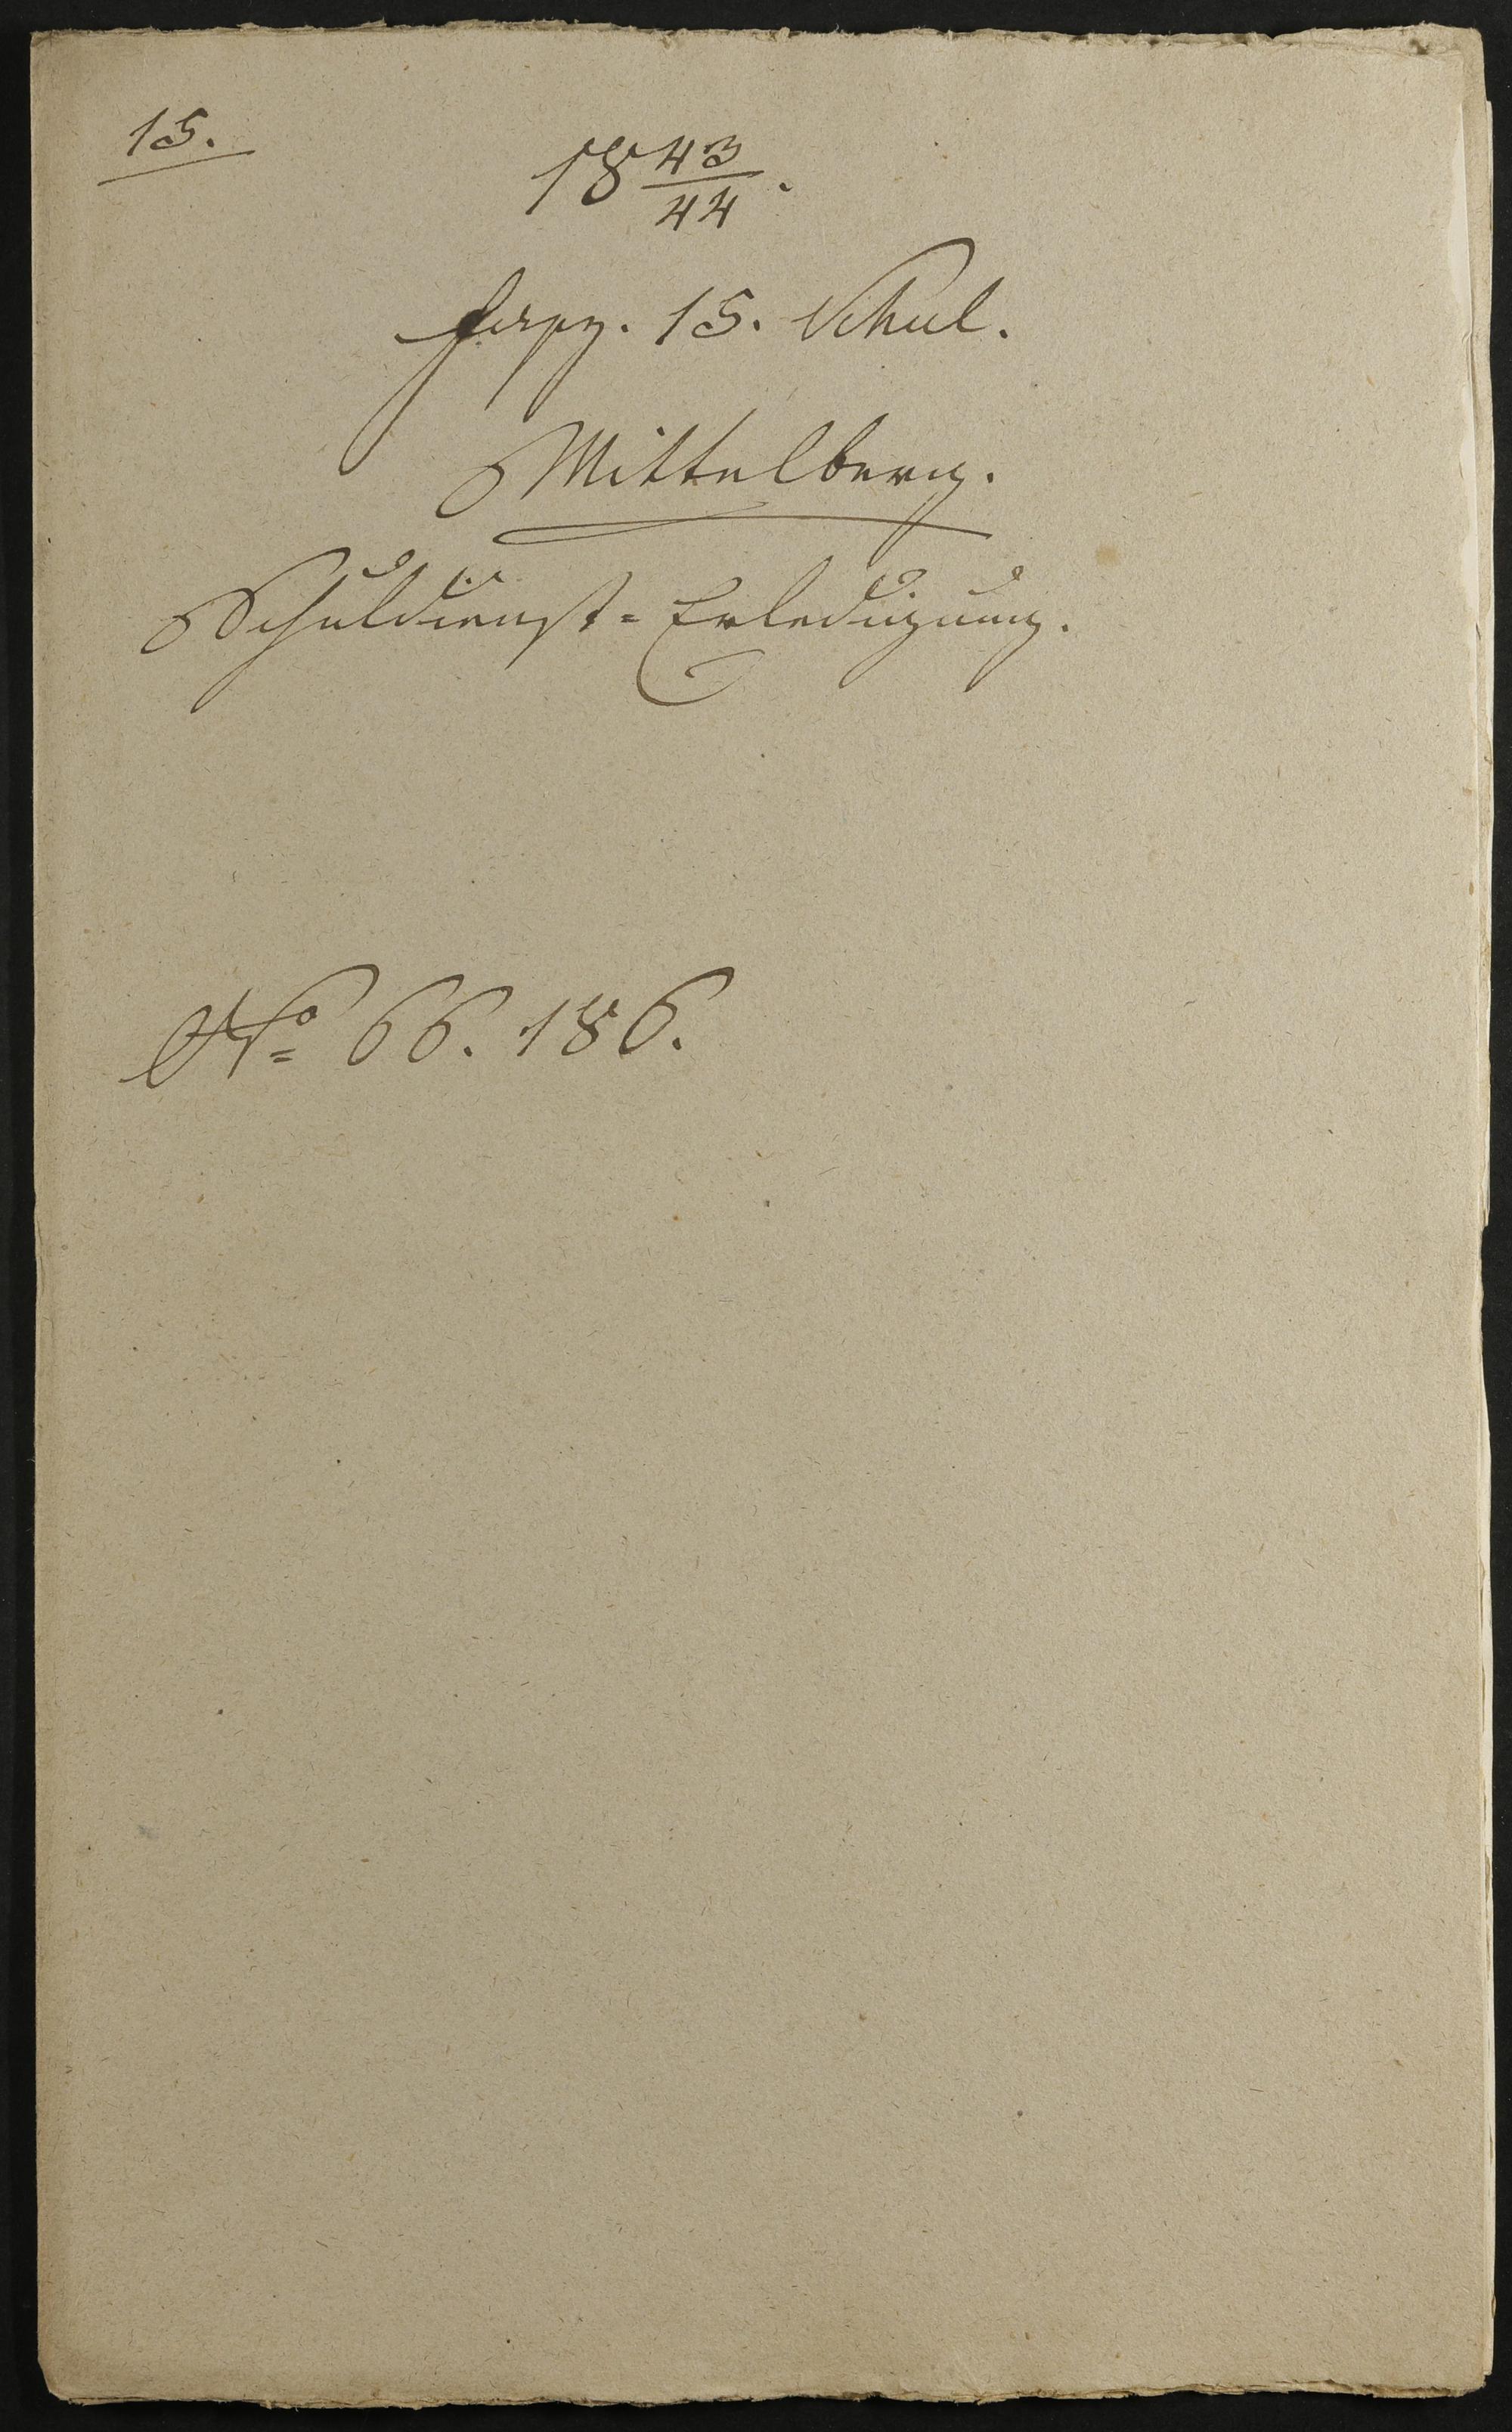 15.
18 43/44.
Fasz. 15. Schul.
Mittelberg.
Schuldienst=Erledigung.
No 66. 186.